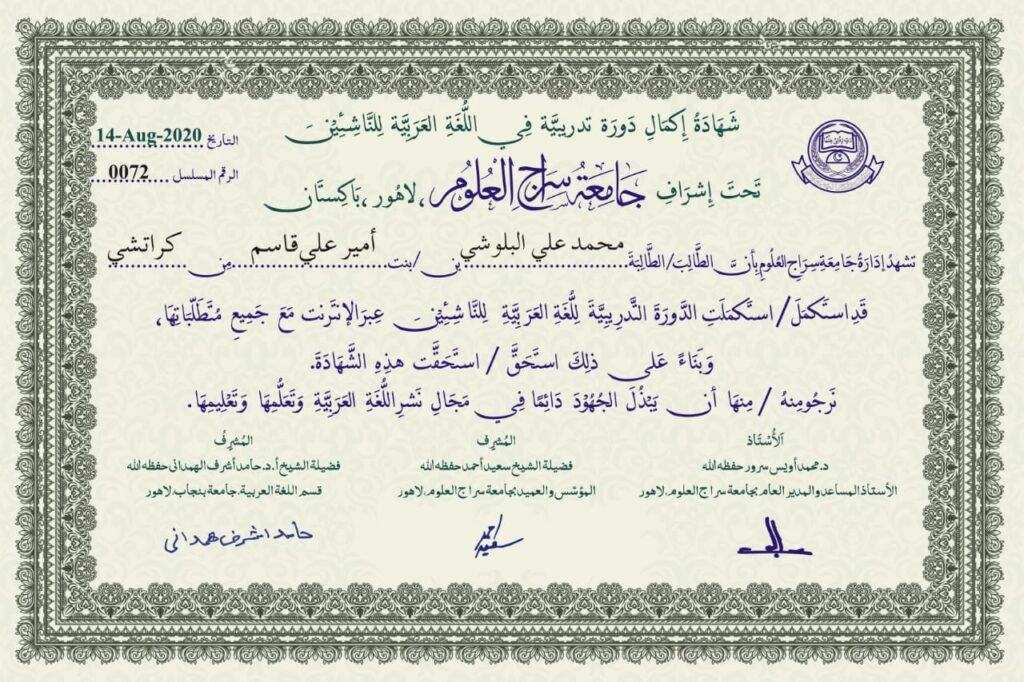 شَهَادَةُ إِكمَالِ دَورَة تدريبيَّة فِي اللُّغَةِ العَرَبِيَّة لِلنَّاشِئِين
التاريخ 14-Aug-2020
الرقم المسلسل 0072
تَحتَ إِشرَافِ جَامِعَة سِرَاجِ العُلُومِ، لاهُور، بَاكِستَان
تشهدُ إدَارَةُ جَامِعَةِ سِرَاجِ العُلُومِ بِأَنَّ الطَّالِبَ/الطَّالِبَةَ محمد علي البلوشي بن/بنت أمير علي قاسم مِن كراتشي
قَدِ استَكمَلَ/استَكمَلَتِ الدَّورَةَ التَّدرِيبِيَّةَ لِلُّغَةِ العَرَبِيَّةِ لِلنَّاشِئِين عِبرَ الإنتَرنت مَعَ جَمِيعِ مُتَطَلَّبَاتِهَا،
وَبَنَاءً عَلى ذلِكَ استَحَقَّ / استَحَقَّت هذِهِ الشَّهَادَةَ.
نَرجُو مِنهُ / مِنهَا أن يَبْذُلَ الجُهُوْدَ دَائِمًا فِي مَجَالِ نَشرِ اللُّغَةِ العَرَبِيَّةِ وَتَعَلُّمِهَا وَتَعْلِيمِهَا.
الأُسْتَاذ
د. محمد أويس سرور حفظه الله
الأستاذ المساعد والمدير العام بجامعة سراج العلوم، لاهور
المُشرِف
فضيلة الشيخ سعيد أحمد حفظه الله
المؤسّس والعميد بجامعة سراج العلوم، لاهور
المُشرِفُ
فضيلة الشيخ أ. د. حامد أشرف الهمداني حفظه الله
قسم اللغة العربية، جامعة بنجاب، لاهور
حامد اشرف ہمدانی